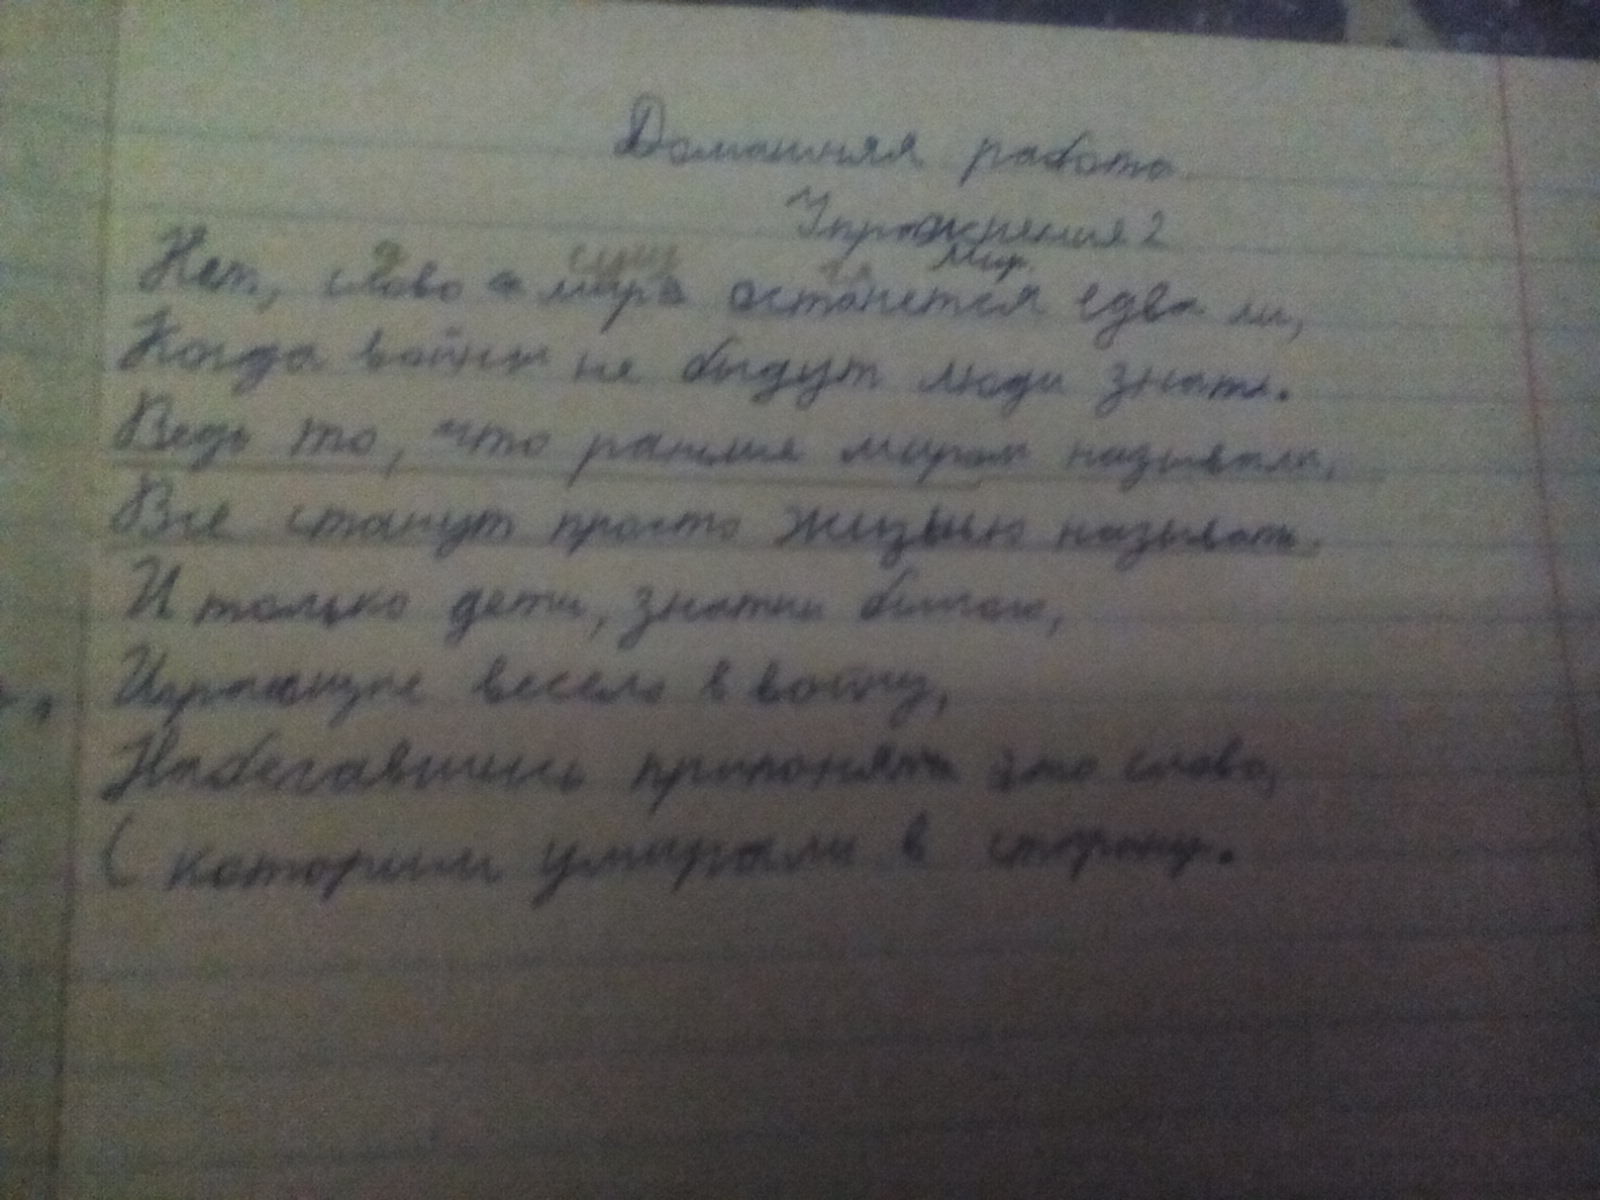 Домашняя работа
Упражнения 2
сущ Мир.
Нет, слово "мир" останется едва ли,
Когда войны не будут люди знать.
Ведь то, что раньше миром называли,
Все станут просто жизнью называть.
И только дети, знатки былого,
Играющие весело в войну,
Набегавшись припомнят это слово,
С которым умирали в сторону.